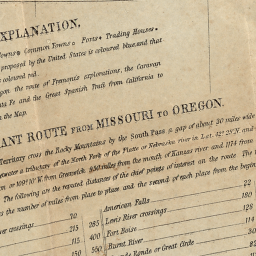 EXPLANATION.
Towns. Common Towns. Forts. Trading Houses.
proposed by the United States is coloured blue, and that
is coloured red.
upon the route of Fremont's explorations, the Caravan
Santa Fe and the Great Spanish Trail from California to
on the Map.
ROUTE FROM MISSOURI TO OREGON.
Territory cross the Rocky Mountains by the South Pass a gap of about 30 miles wide
a tributary of the North Fork of the Platte or Nebraska river in Lat. 42° 28' N. and
from Greenwich, 962 miles from the mouth of Kansas river and 1114 from
The following are the reputed distances of the chief points of interest on the route. The
the number of miles from place to place and the second of each place from the begin
American Falls 22
river crossings 70
Lewis River crossings 180
215 285
Fort Boise 128
115 400
Burnt River 114
150 550
Grande Ronde or Great Circle 30
82